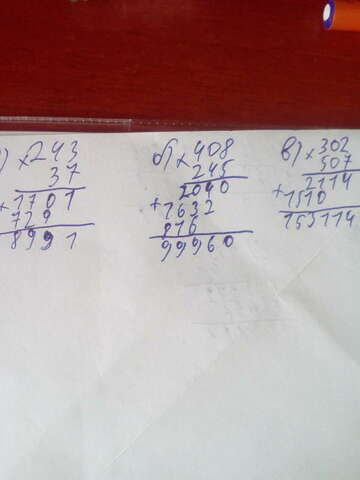 ) ×243
37
+1701
729
8991
б) ×408
245
2040
+1632
816
99960
в) ×302
507
2114
+1510
153114